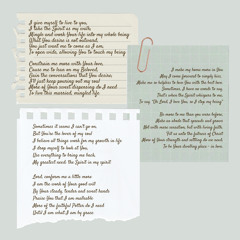 I give myself to live to you,
I take the Spirit as my unity,
Mingle and work Your life into my whole being
What You desire is not outward,
You just want me to come as I am,
To open wide, allowing You to touch my being.
Constrain me more with Your love,
Cause me to hear as my Beloved,
Gain the conversations that You desire,
I'll just keep pouring out my soul
More of Your sweet dispensing do I need
To live this married, mingled life.
I make my home more in You
May I come forward to simply love,
Make me so helpless to love You with the first love
Sometimes, I have no words to say,
That's when the Spirit whispers to me,
To say "Oh Lord, I love You, is it okay by me"
Be more to me than you were before,
Make us whole that spreads and grows
Not with more creation, but with loving faith,
Fill us into the fulness of Christ
More of Your strength and calling do we need
To be Your dwelling place - in love.
Sometimes it seems I can't go on,
But You're the lover of my soul
I believe all things work for my growth in life
I drop myself to rest in You,
Use everything to bring me back,
My greatest need: the Spirit in my spirit
Lord, conform me a little more
I am the work of Your good will
By Your steady, tender and sweet hands
Praise You that I am malleable
More of the faithful Potter do I need
Until I am what I am by grace